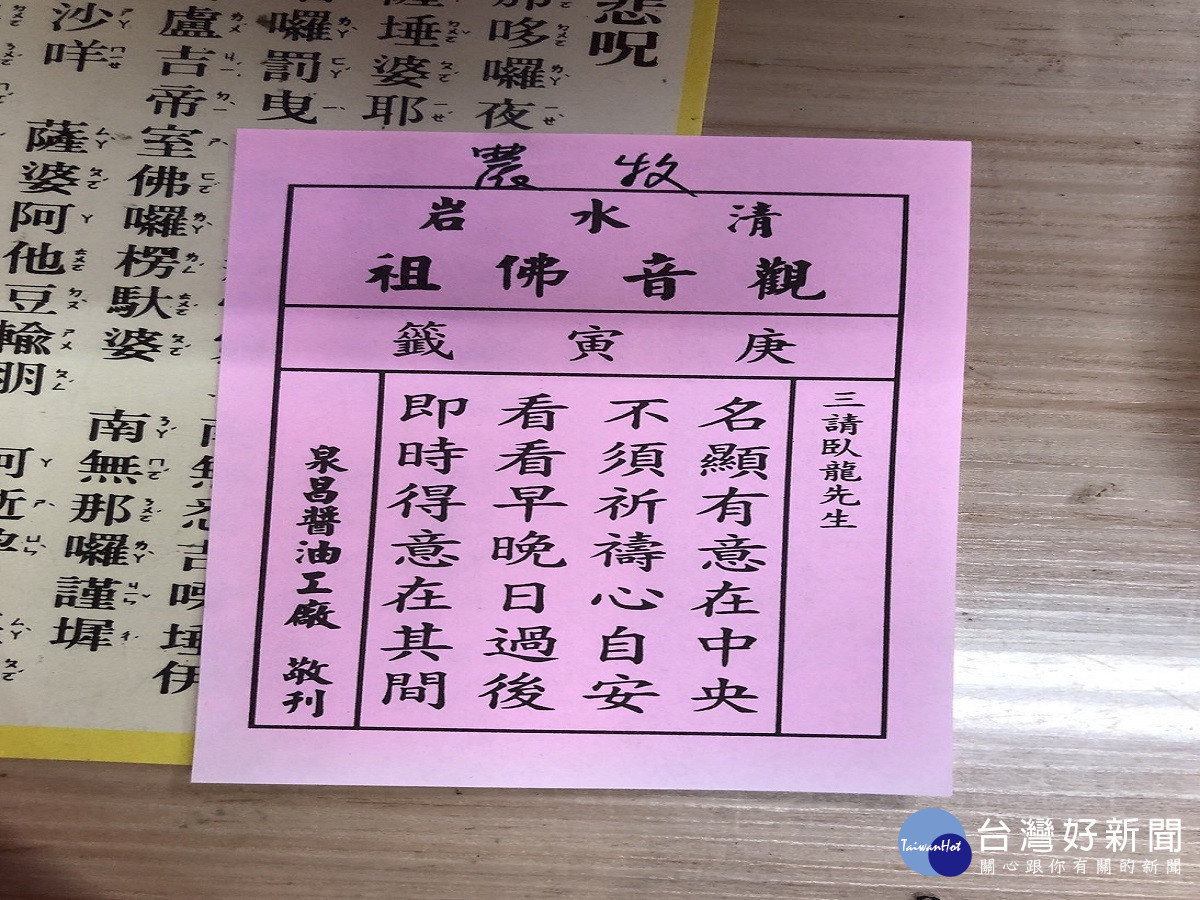 悲呪
哆囉夜
埵婆耶
囉罰曳
盧吉帝室佛囉楞馱婆
沙咩
薩婆阿他豆輸朋
南無那囉謹墀
農牧
清水岩
觀音佛祖
庚寅籤
三請臥龍先生
名顯有意在中央
不須祈禱心自安
看看早晚日過後
即時得意在其間
泉昌醬油工廠 敬刊
TaiwanHot
台灣好新聞
關心跟你有關的新聞